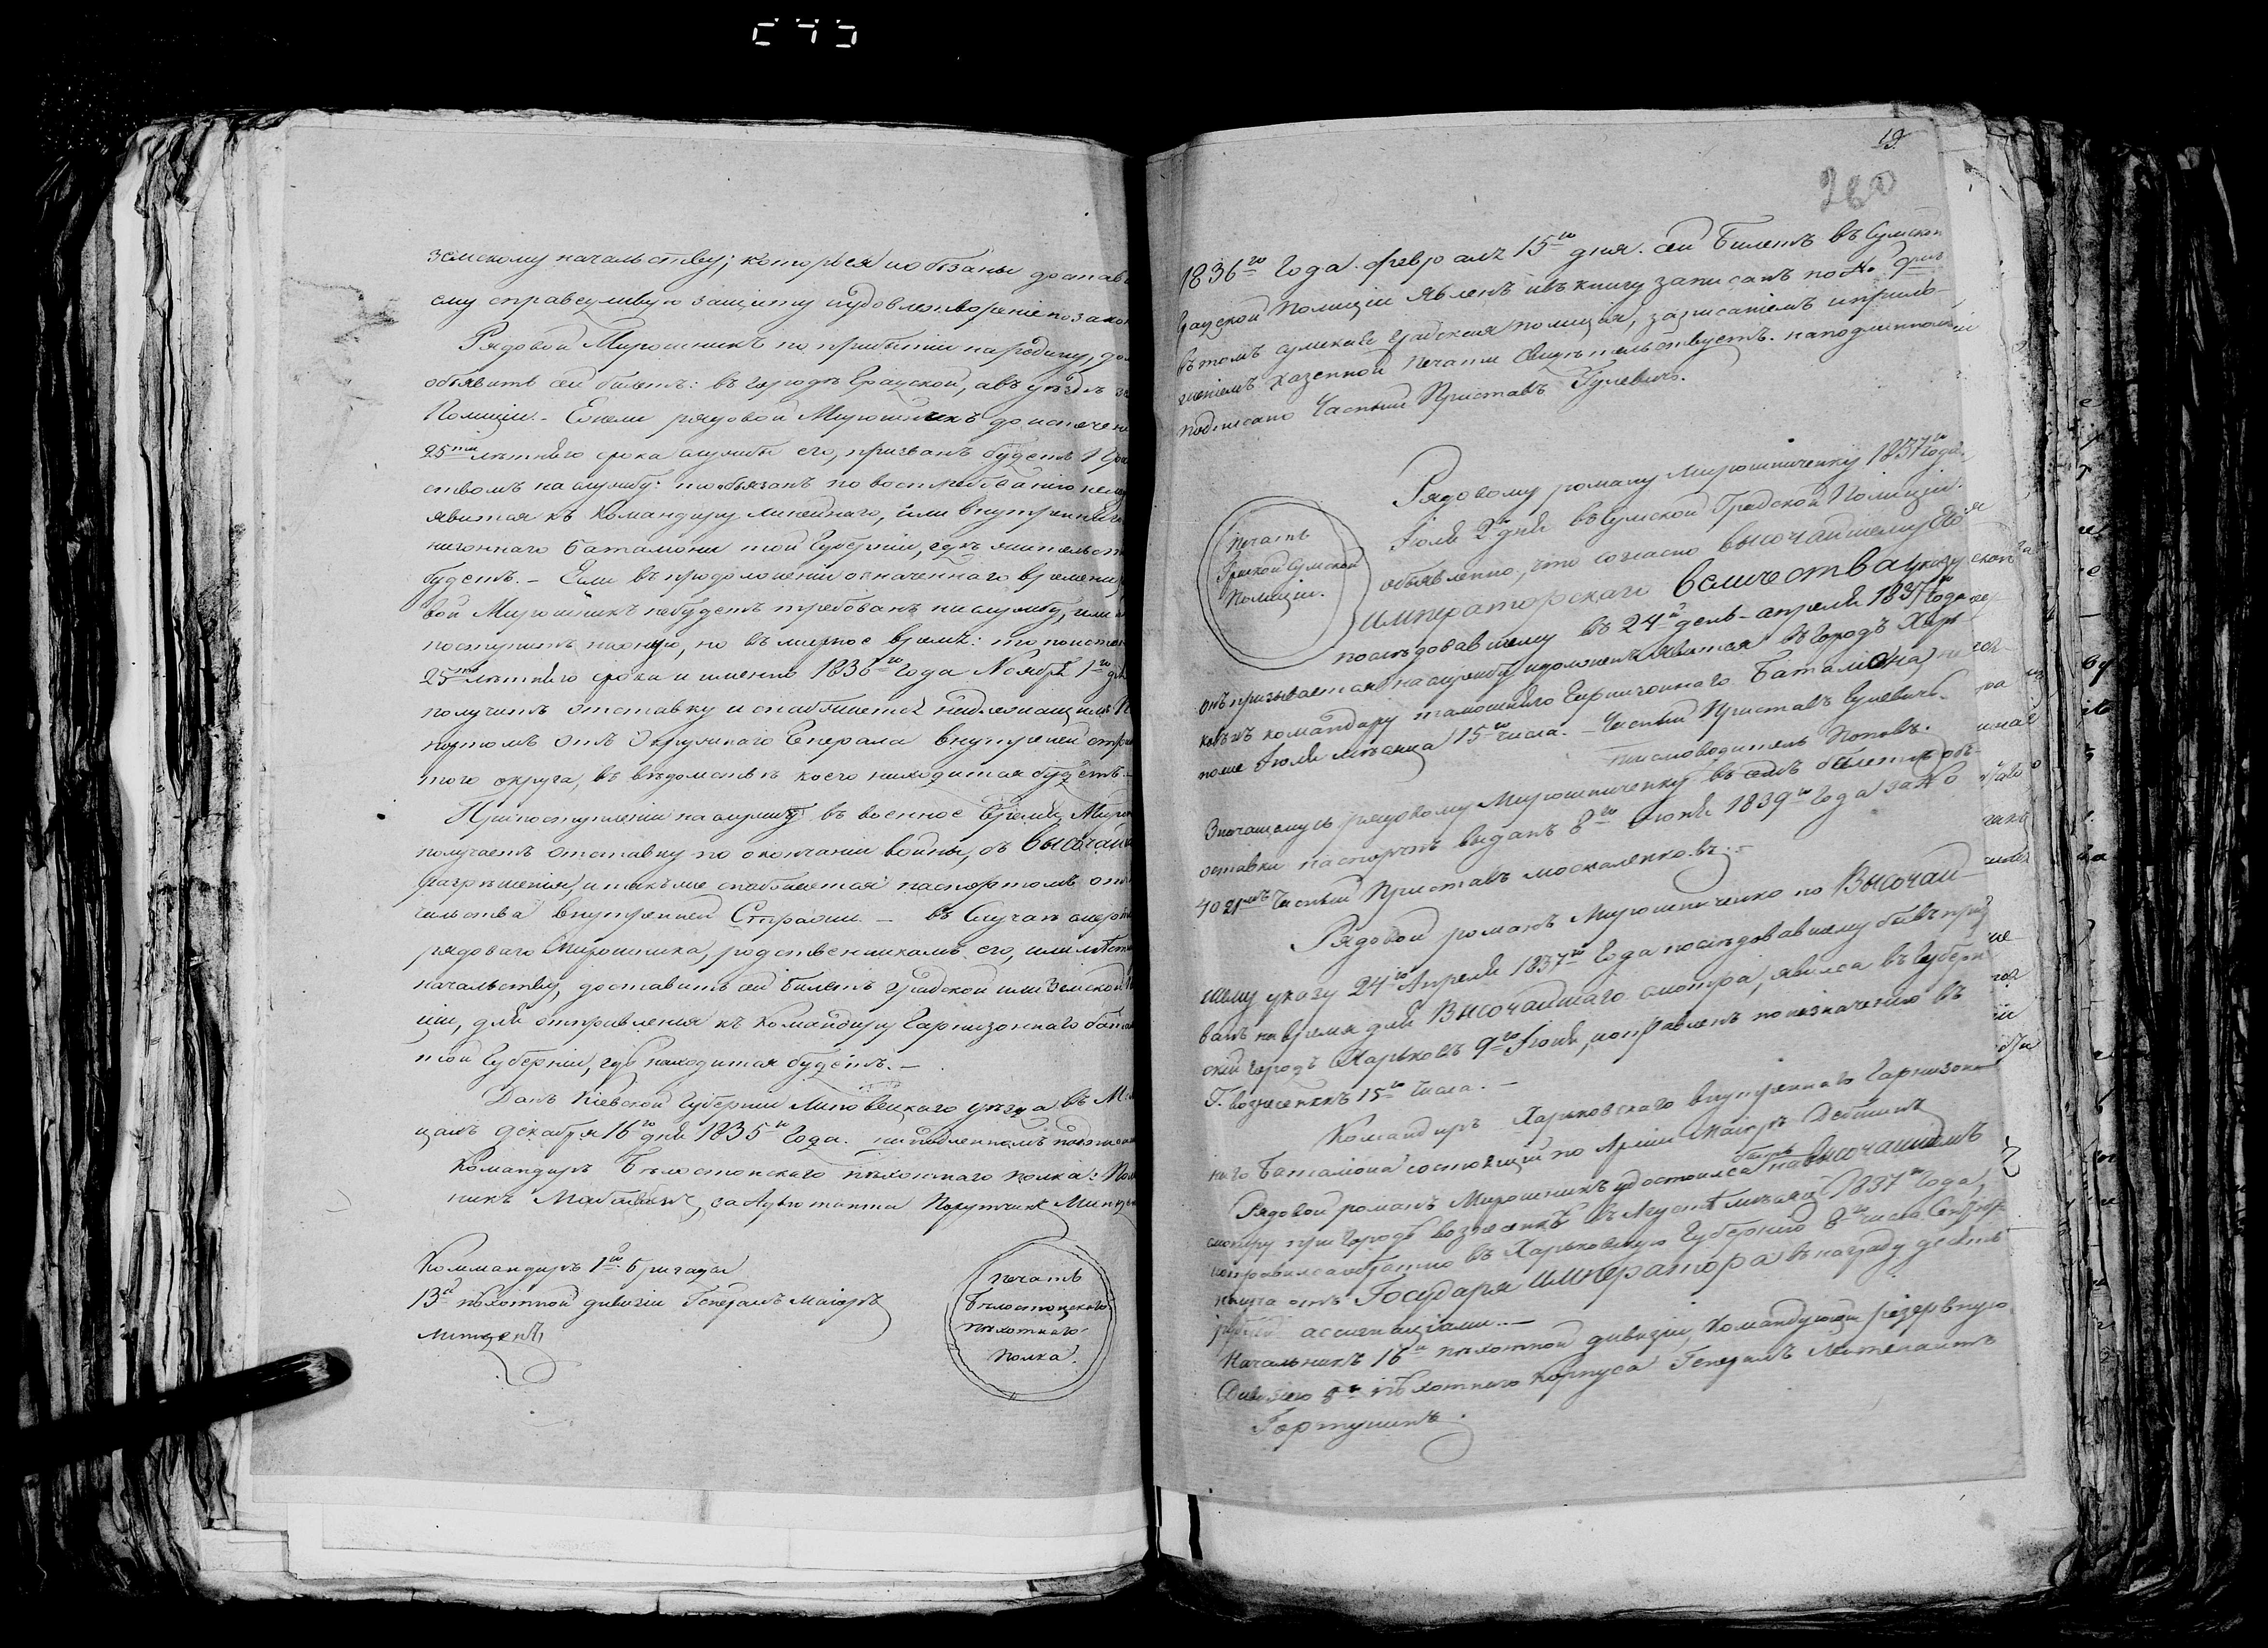 земскому начальству; которыя и обязаны достав
ему справедливую защиту и удовлетворение по закон
Рядовой Мирошникъ по прибытіи на родину, до
объявить сей билетъ: въ городѣ Градской, а въ уѣздѣ зе
Полиціи. – Ежели рядовой Мирошникъ до истечен
25ти лѣтняго срока службы его, призванъ будетъ
ствомъ на службу: то обязанъ по востребованію
явится къ Командиру линейнаго, или внутренняго
низоннаго баталіона той Губерніи, гдѣ жительст
будетъ. – Если въ продолженіи означеннаго времени
вой Мирошникъ небудетъ требованъ на службу, или
поступитъ на оную, но въ мирное время: то по исте
25ти лѣтняго срока и именно 1836го Года Ноября 1го
получитъ отставку и снабжается надлежащимъ
портомъ отъ Окружнаго Генерала внутреней стра
того округа, въ вѣдомствѣ коего находится будетъ. –
При поступленіи на службу въ военное время, Мирош
получаетъ отставку по окончаніи войны, съ Высочай
разрѣшенія, и также снабжается паспортомъ отъ
чальства внутренней Стражи. – въ Случаѣ смерти
рядоваго Мирошника, родственникамъ его, или мѣстн
начальству, доставить сей билетъ градской или Земской
ціи, для отправленія къ Командиру Гарнизоннаго бата
той Губерніи, гдѣ находится будетъ. –
Данъ Кіевской Губерніи Липовецкаго уѣзда въ М:
цахъ декабря 16го дня 1835го Года. на подлинномъ подписали
Командиръ Бѣлостокскаго пѣхотнаго полка:
никъ за Адъютанта Порутчикъ
Коммандиръ 1й бригады
13й пѣхотной дивизіи Генералъ Маіоръ
печать
Бѣлостоцскаго
пѣхотнаго
полка.
19
260
1836го Года февраля 15го дня. сей билетъ въ Сумской
Градской Полиціи явленъ и въ книгу записанъ по №
въ томъ сумская градская полиція, записаніемъ и прило–
женіемъ казенной печати Свидѣтельствуетъ. на подлинномъ
подписано Частный Приставъ Гулевичъ.
Рядовому роману Мирошниченку 1837го Года.
Іюля 2го дня въ Сумской Градской Полиціи.
объявленно, что согласно высочайшему Его
Императорскаго величества указу
последовавшему въ 24й день апреля 1837го Года
печать
Градской Сумской
Полиціи.
онъ призывается на службу и долженъ явится въ городъ Харь–
ковъ къ командиру тамошняго Гарнизоннаго Баталіона, не
позже Іюля мѣсяца 15го числа. – Частный Приставъ Гулевичъ.
писмоводитель Поповъ.
Значащемуся рядовому Мирошниченку въ семъ билетѣ объ
оставки паспортъ выданъ 8го Іюня 1839го Года за №
Частный Приставъ москаленковъ: –
Рядовой романъ Мирошниченко по Высочай–
шему указу 24го Апреля 1837го Года последовавшему бывъ приз
ванъ на время для Высочайшаго смотра, явился въ Губерн
скій городъ Харьковъ 9го Іюля, и отправленъ по назначенію въ
Г. вознесенскъ 15го числа. –
Командиръ Харьковскаго внутренняго Гарнизон
наго Баталіона состоящій по Арміи Маіоръ
Рядовой романъ Мирошникъ удостоился быть на высочайшемъ
смотру при Городѣ вознесенскѣ въ Августѣ мѣсяцѣ 1837го Года,
и отправился обратно въ Харьковскую Губернію 8го числа Сентябр
получа отъ Государя Императора въ награду десять
рублей ассигнаціами. –
Начальникъ 16й пѣхотной дивизіи, Командующій резервную
Дивизіею 5го пѣхотнаго Корпуса Генералъ Лейтенантъ